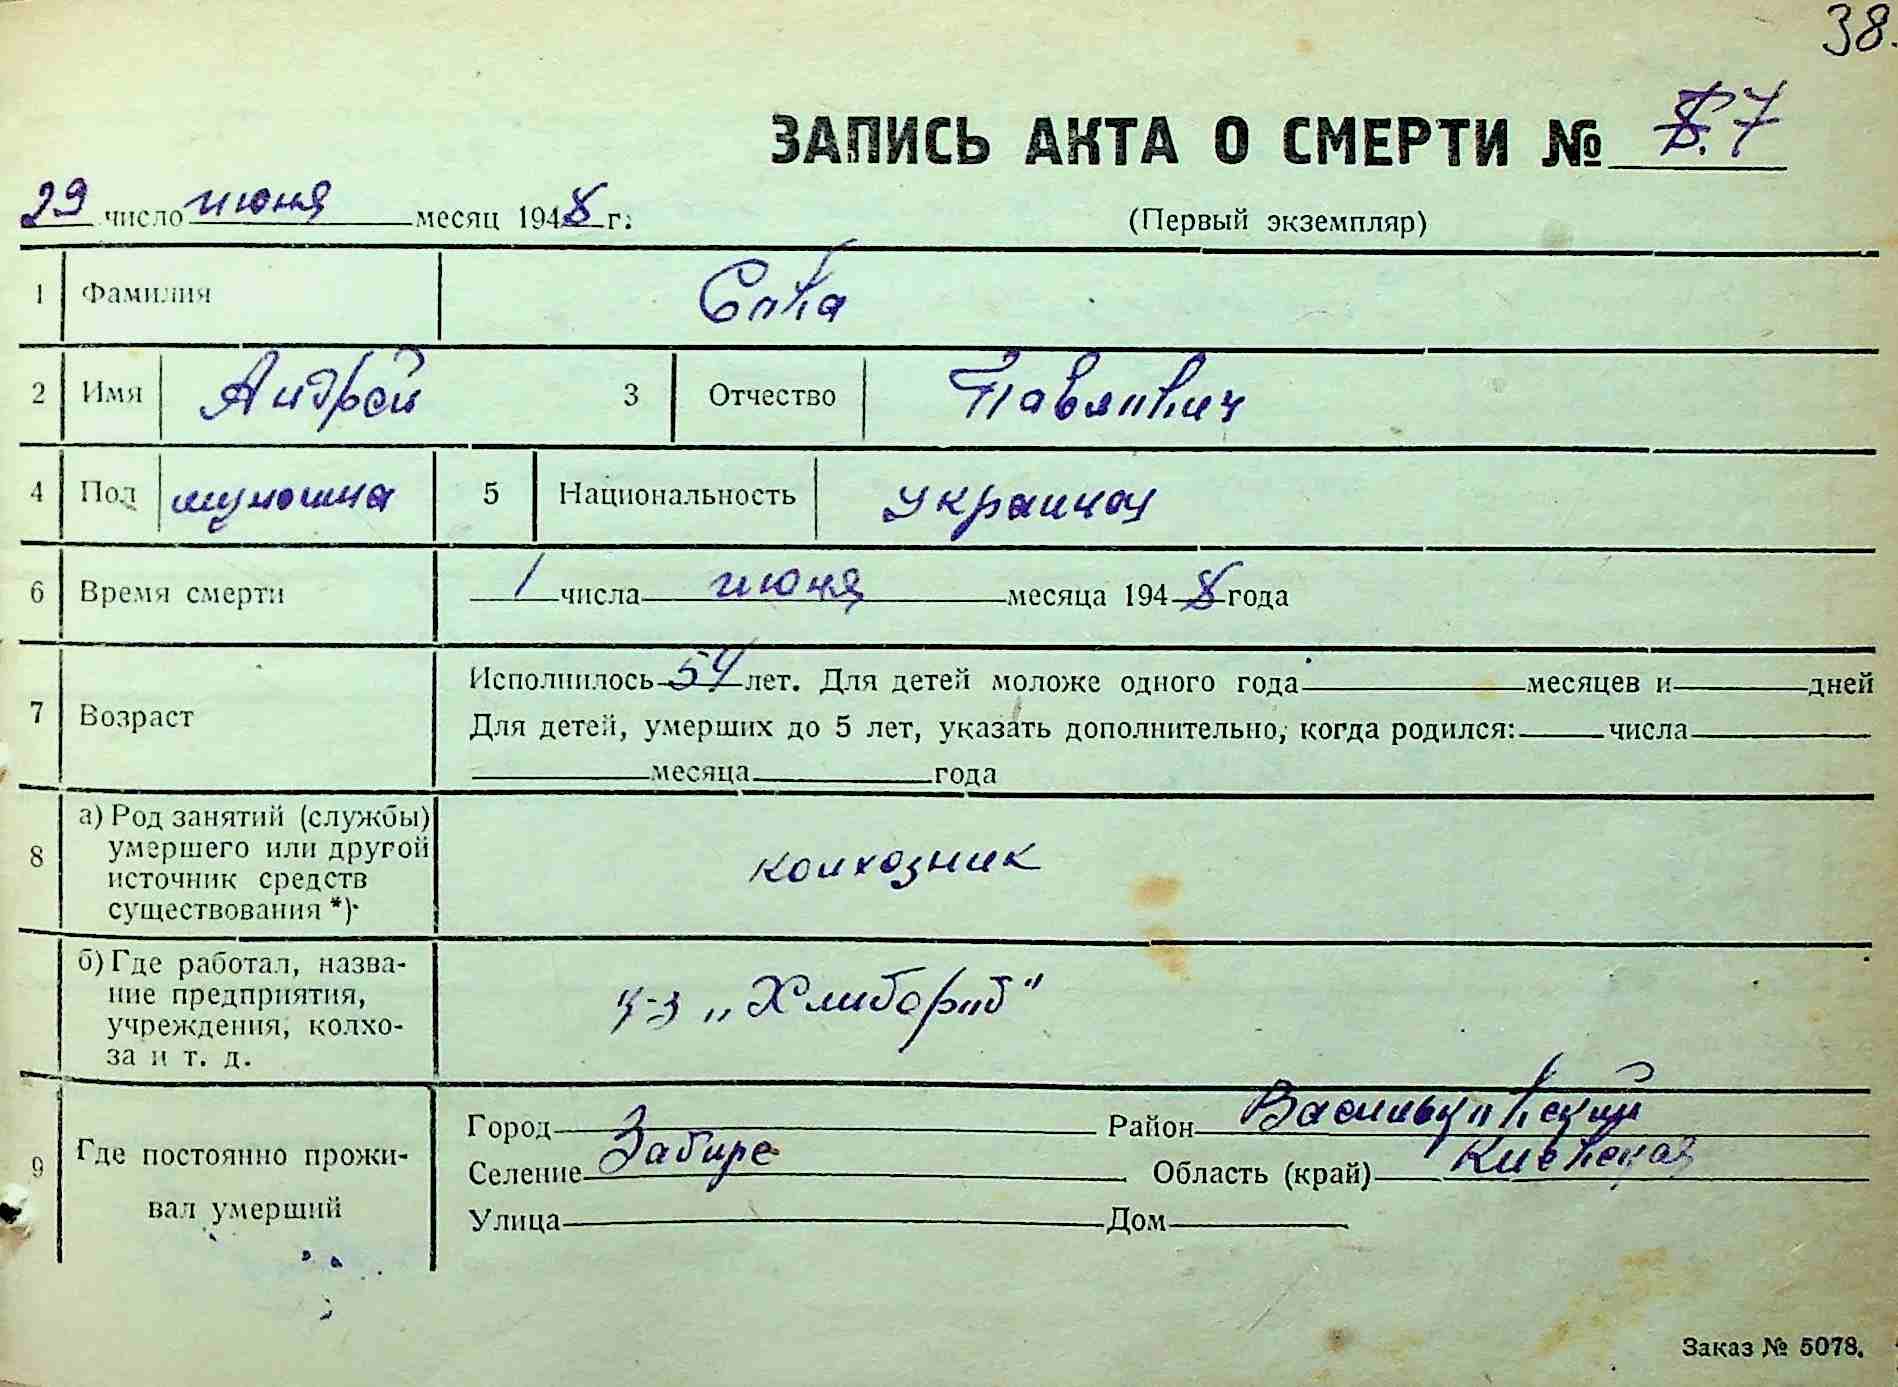 38.
ЗАПИСЬ АКТА О СМЕРТИ № 7
29 число июня месяц 1948 г.
(Первый экземпляр)
1 Фамилия
2 Имя Андрей 3 Отчество Павлович
4 Пол мужчина 5 Национальность украинец
6 Время смерти 1 числа июня месяца 1948 года
7 Возраст Исполнилось 54 лет. Для детей моложе одного года месяцев и дней
Для детей, умерших до 5 лет, указать дополнительно, когда родился: числа
месяца года
8 а) Род занятий (службы)
умершего или другой
источник средств
существования *)
колхозник
б) Где работал, назва-
ние предприятия,
учреждения, колхо-
за и т. д.
к-з „Хлибороб"
9 Где постоянно прожи-
вал умерший
Город Район Васильковский
Селение Забирье Область (край) Киевская
Улица Дом
Заказ № 5078.